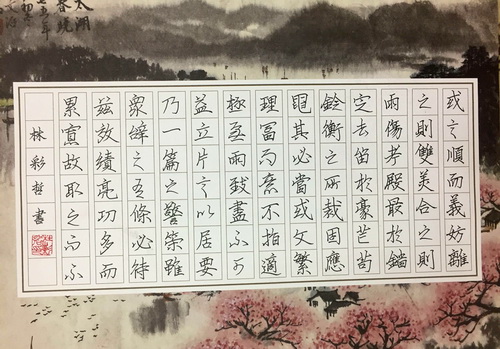 或言順而義妨離
之則雙美合之則
兩傷考殿最於錙
定去留於豪芒苟
銓衡之所裁固應
繩其必當或文繁
理富而意不指適
極無兩致盡不可
益立片言以居要
乃一篇之警策雖
眾辭之有條必待
茲效績亮功多而
累寡故取之而不
林彩哲書
太湖
春曉